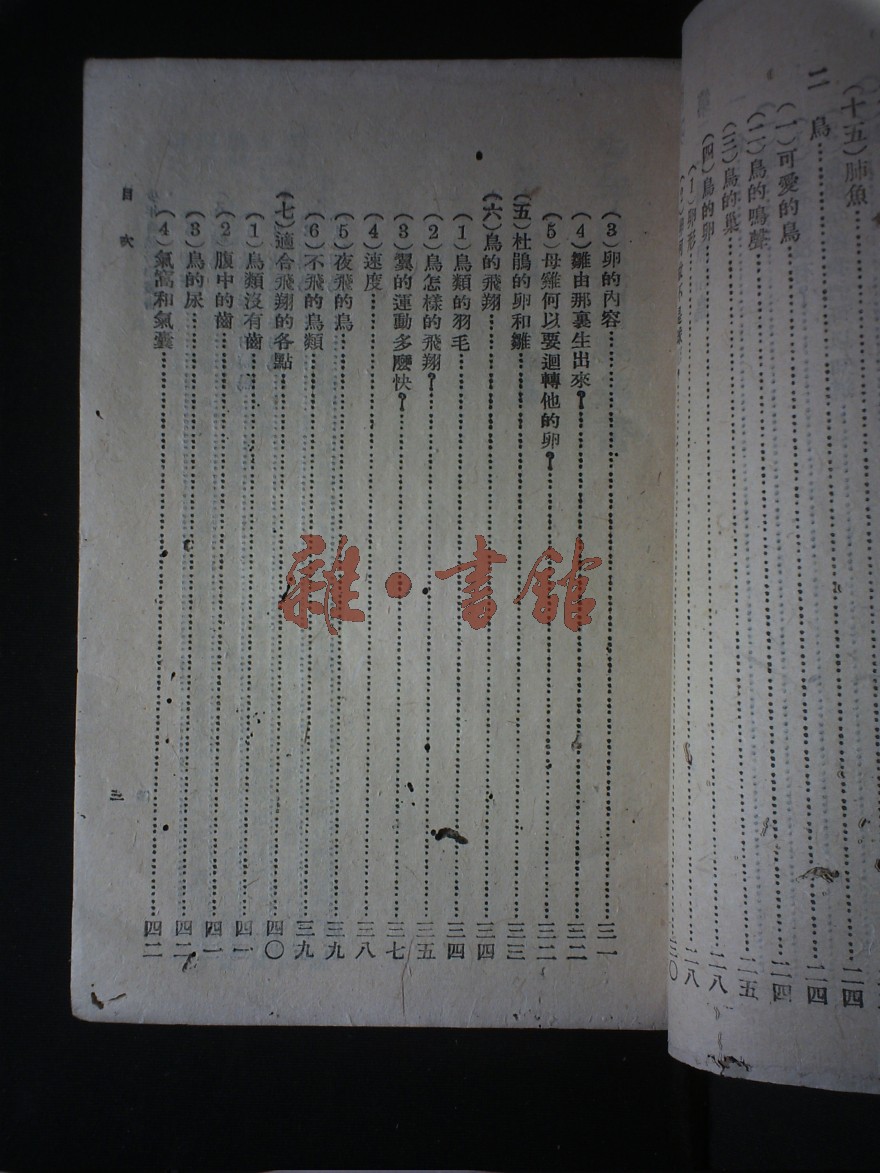 (十五)肺魚…………二四
二 鳥…………二四
(一)可愛的鳥…………二四
(二)鳥的鳴聲…………二五
(三)鳥的巢…………二八
(四)鳥的卵…………二八
(3)卵的內容…………三一
(4)雛由那裏生出來?…………三二
(5)母雞何以要迴轉他的卵?…………三二
(五)杜鵑的卵和雛…………三三
(六)鳥的飛翔…………三四
(1)鳥類的羽毛…………三四
(2)鳥怎樣的飛翔?…………三五
(3)翼的運動多麼快?…………三七
(4)速度…………三八
(5)夜飛的鳥…………三九
(6)不飛的鳥類…………三九
(七)適合飛翔的各點…………四〇
(1)鳥類沒有齒…………四一
(2)腹中的齒…………四一
(3)鳥的尿…………四二
(4)氣窩和氣囊…………四二
目次
三
雜·書館